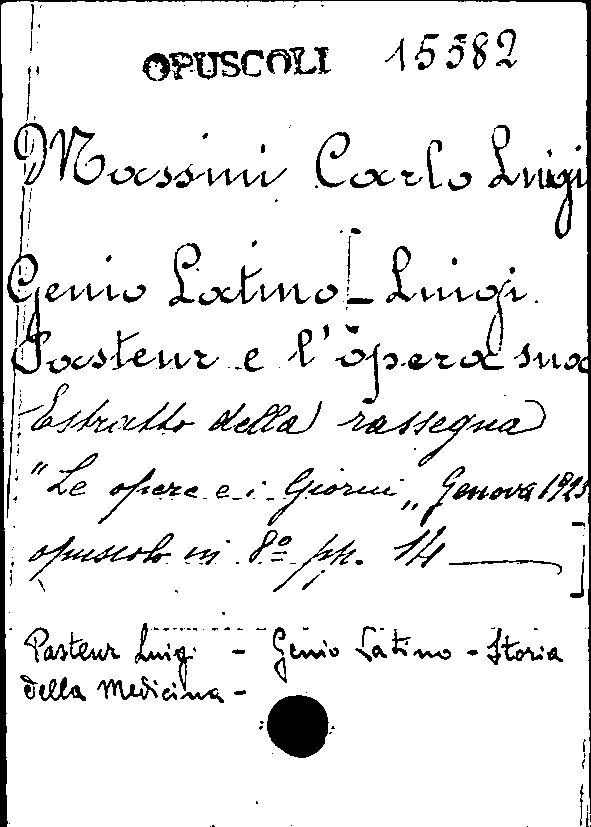 OPUSCOLI 15582
Massini Carlo Luigi
Genio Latino - Luigi
Pasteur e l'opera sua
Estratto della rassegna
"Le opere e i Giorni„ Genova 1925
opuscolo in 8º pp. 14
Pasteur Luigi - Genio Latino - Storia
della Medicina -